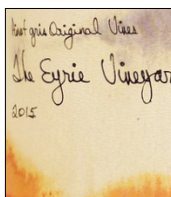 Pinot gris Original Vines
The Eyrie Vineyar
2015